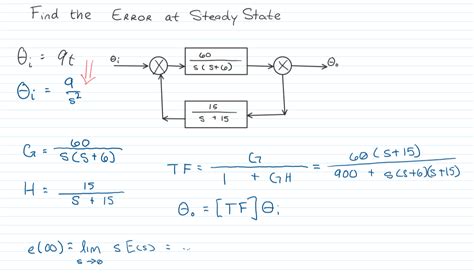 Find the ERROR at Steady State
θi = 9t
θi = 9/s²
θi
60 / s(s+6)
θo
15 / s + 15
G = 60 / s(s+6)
H = 15 / s + 15
TF = G / 1 + GH = 60(s+15) / 900 + s(s+6)(s+15)
θo = [TF]θi
e(∞) = lim s→0 sE(s) = ...